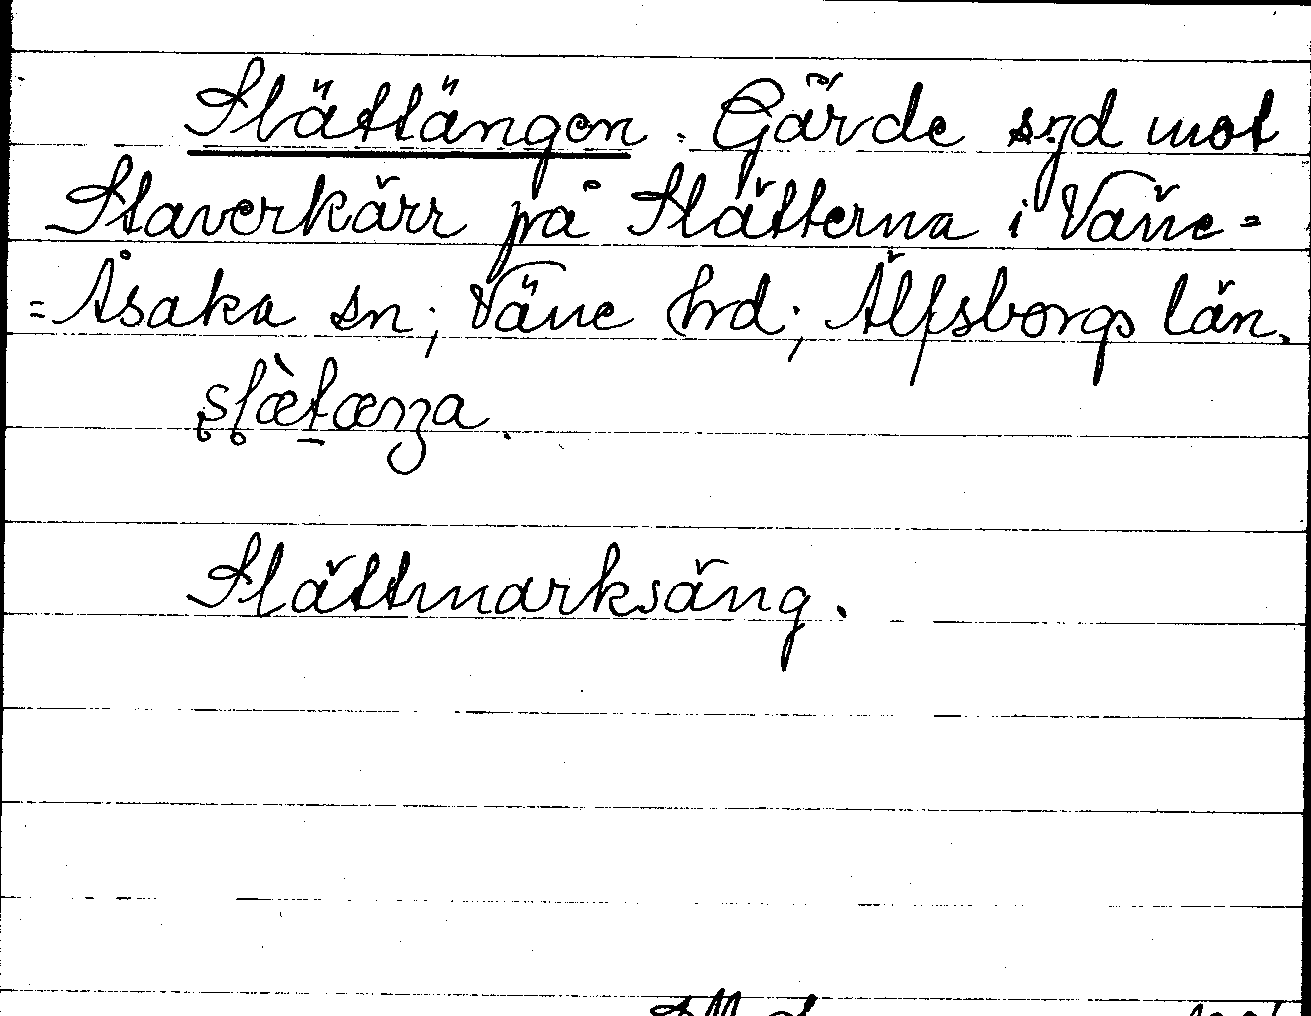 Slättängen. Gärde syd mot
Staverkärr på Slätterna i Väne=
=Åsaka sn; Väne hrd; Älfsborgs län.
slætæŋa.
Slättmarksäng.